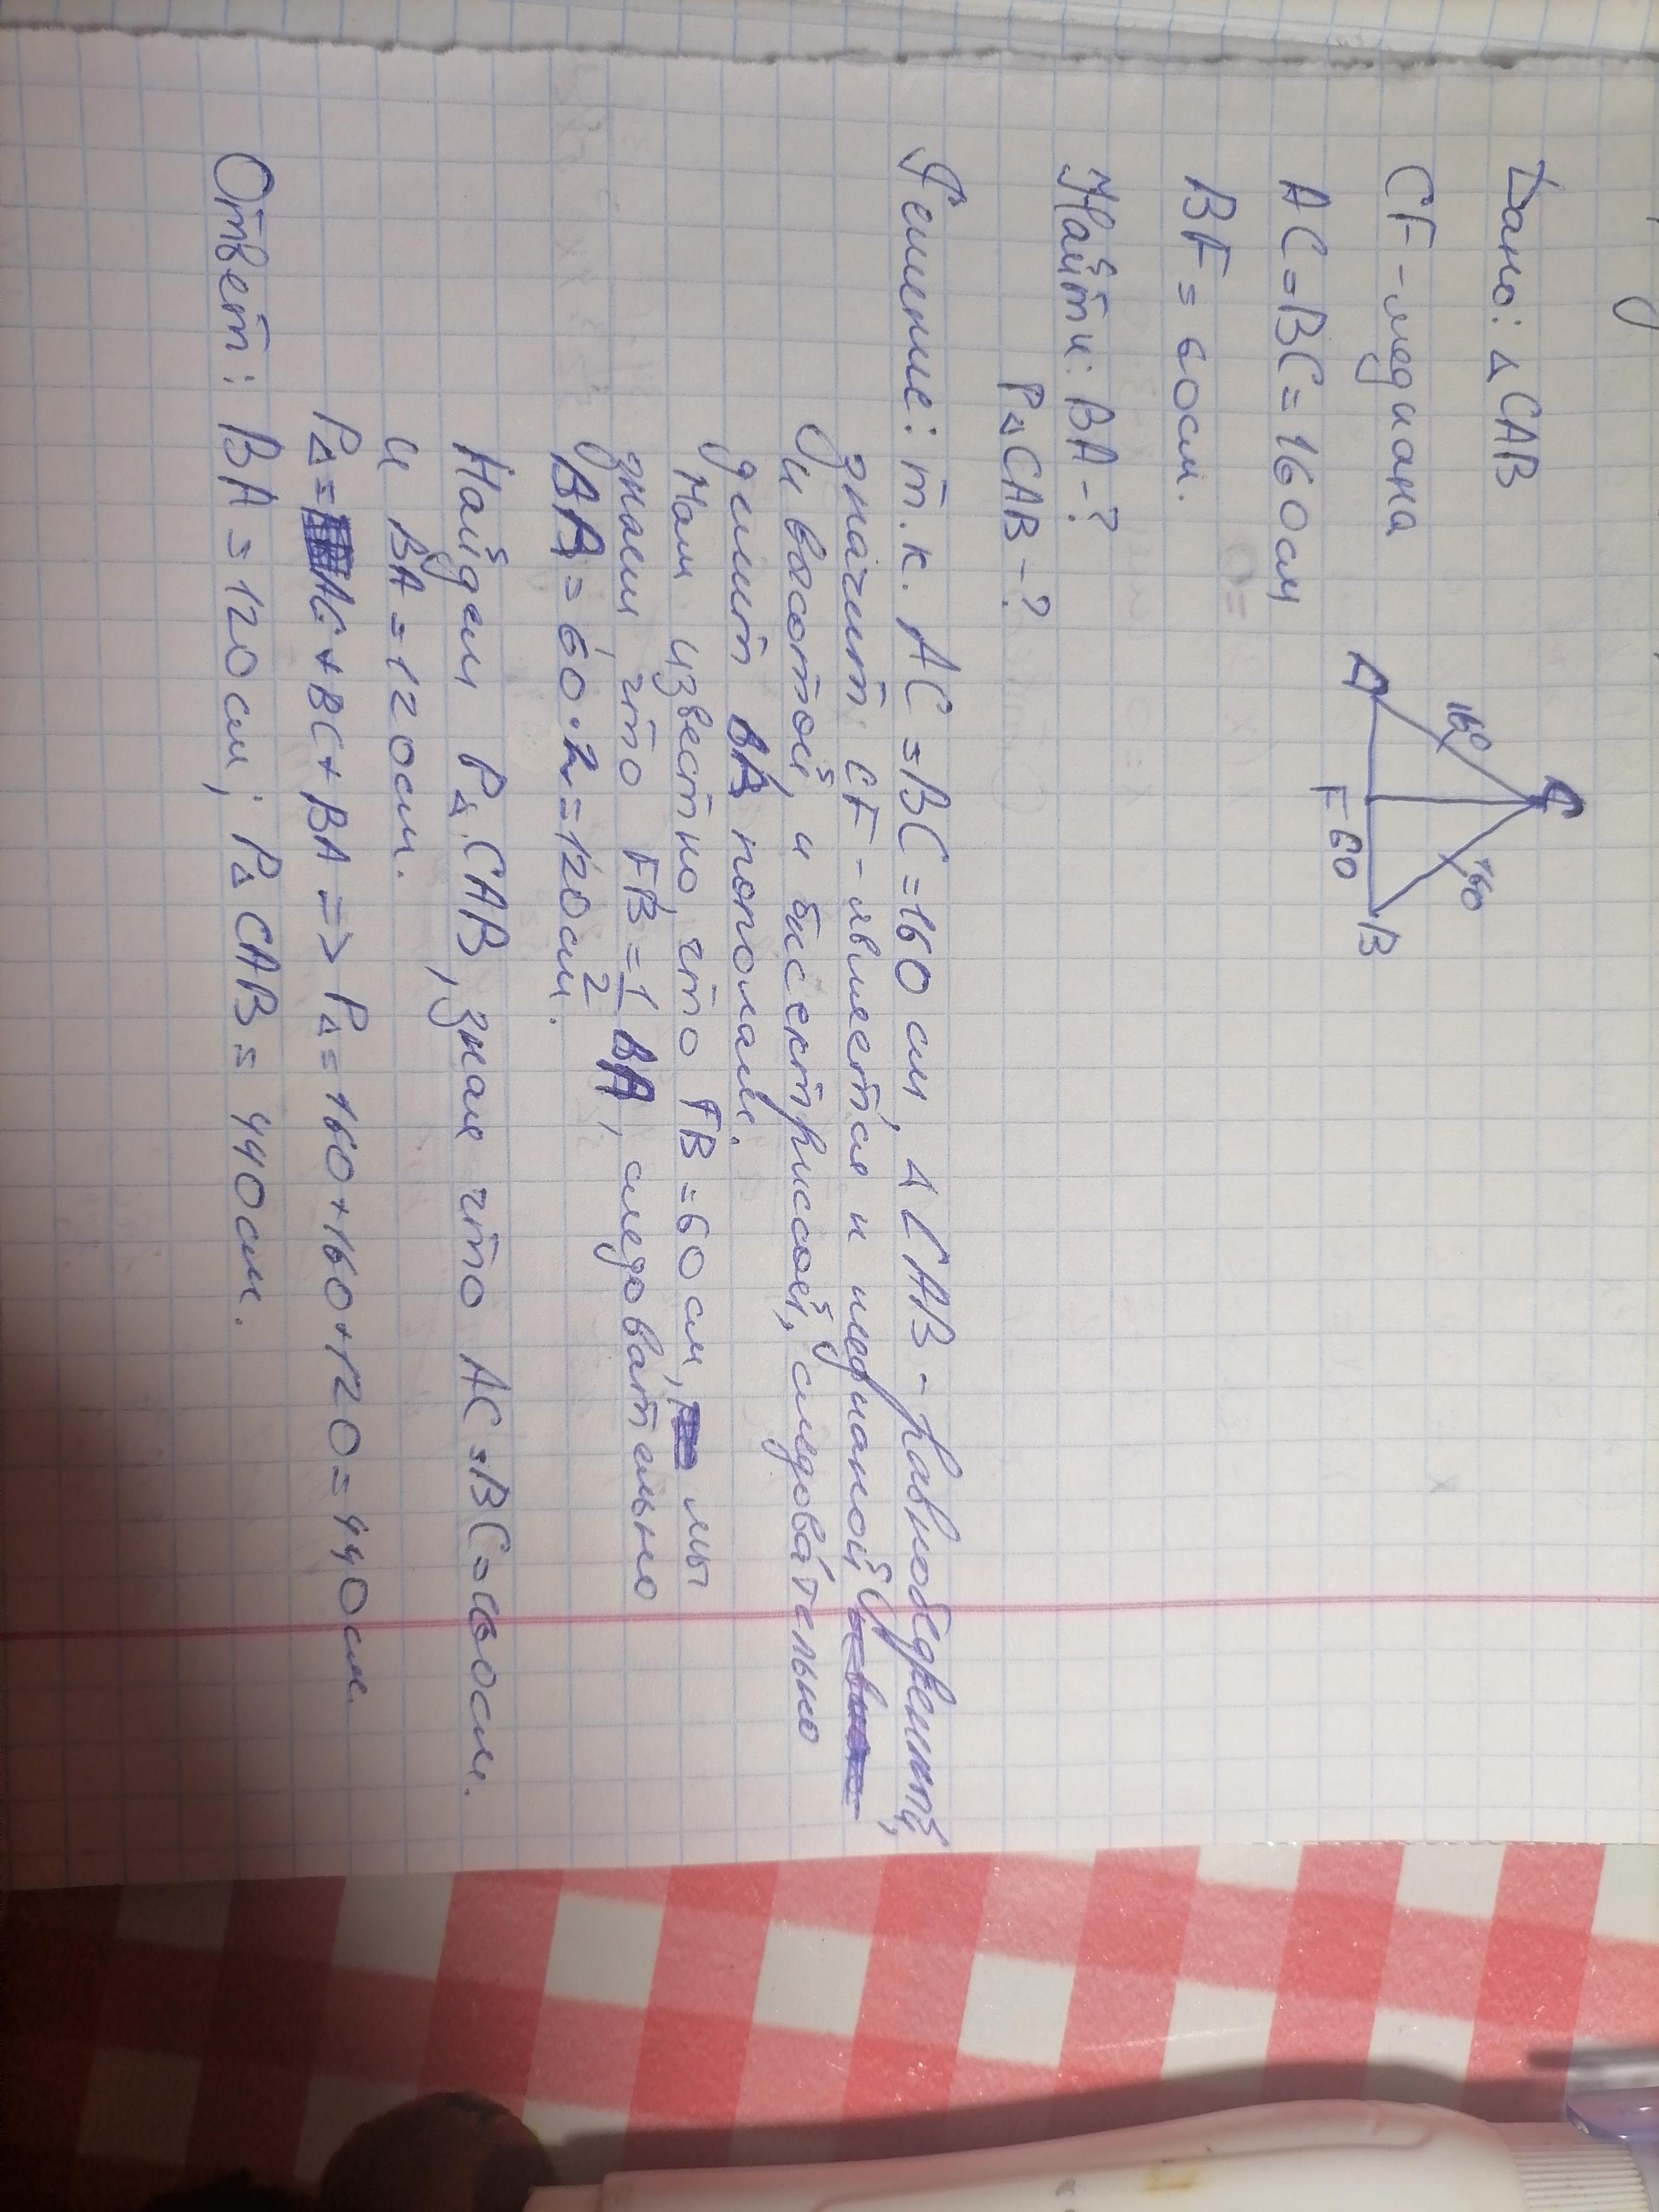 Дано: ΔCAB
CF - медиана
AC = BC = 160 см
BF = 60 см.
Найти: BA - ?
PΔCAB - ?
C
160
160
A
F
60
B
Решение: т.к. AC = BC = 160 см, ΔCAB - равнобедренный,
значит CF - является и медианой,
и высотой, и биссектриссой, следовательно
делит BA пополам.
Нам известно, что FB = 60 см, мы
знаем, что FB = 1/2 BA, следовательно
BA = 60 · 2 = 120 см.
Найдем PΔ CAB, зная что AC = BC = 160 см.
и BA = 120 см.
PΔ = AC + BC + BA => PΔ = 160 + 160 + 120 = 440 см.
Ответ: BA = 120 см; PΔ CAB = 440 см.